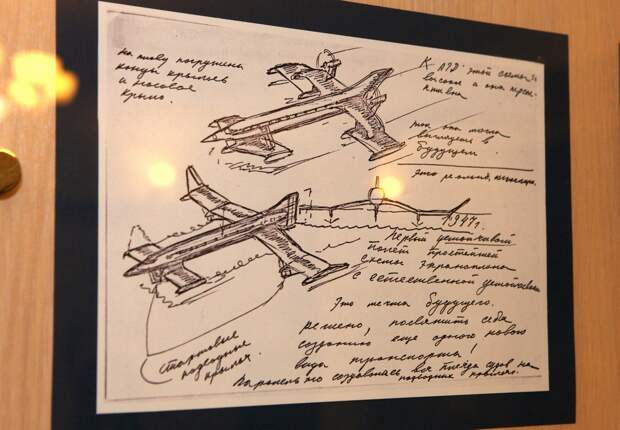 на плаву погружены
концы крыльев
и носовое
крыло.
К этой схемы
высоко и она перс-
пективна
так она могла
выглядеть в
будущем.
это реально,
1947г.
Первый
полёт простейшей
схемы экраноплана
с естественной
Это мечта будущего.
решено, посвятить себя
созданию еще одного нового
вида транспорта!
Параллельно создавалась вся плеяда судов на
подводных крыльях.
Стартовые
подводные
крылья.